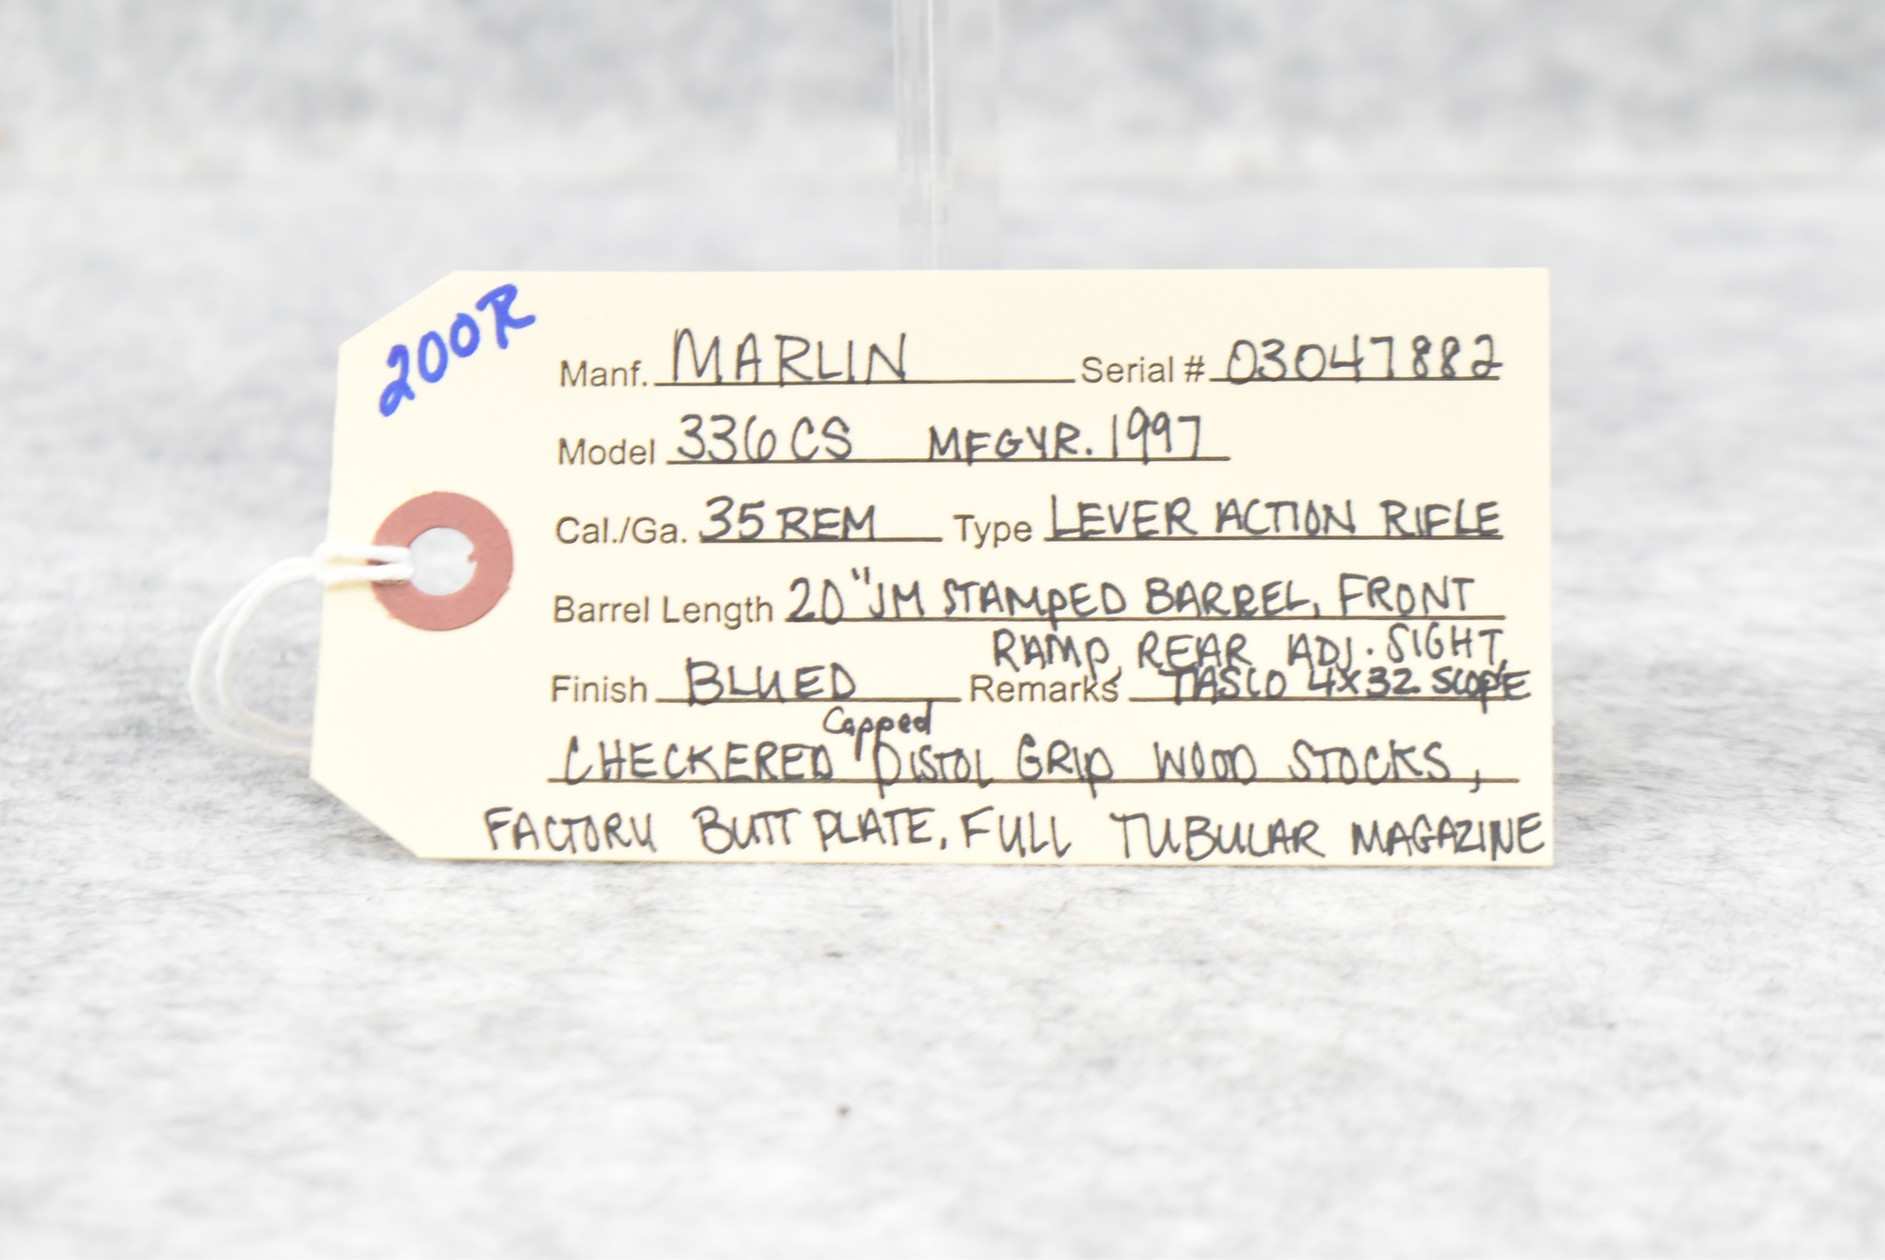 200R
Manf. MARLIN Serial # 03047882
Model 336CS MFGYR. 1997
Cal./Ga. 35 REM Type LEVER ACTION RIFLE
Barrel Length 20" JM STAMPED BARREL, FRONT
RAMP, REAR ADJ. SIGHT,
Finish BLUED Remarks TASCO 4X32 SCOPE
Capped
CHECKERED PISTOL GRIP WOOD STOCKS,
FACTORY BUTT PLATE, FULL TUBULAR MAGAZINE